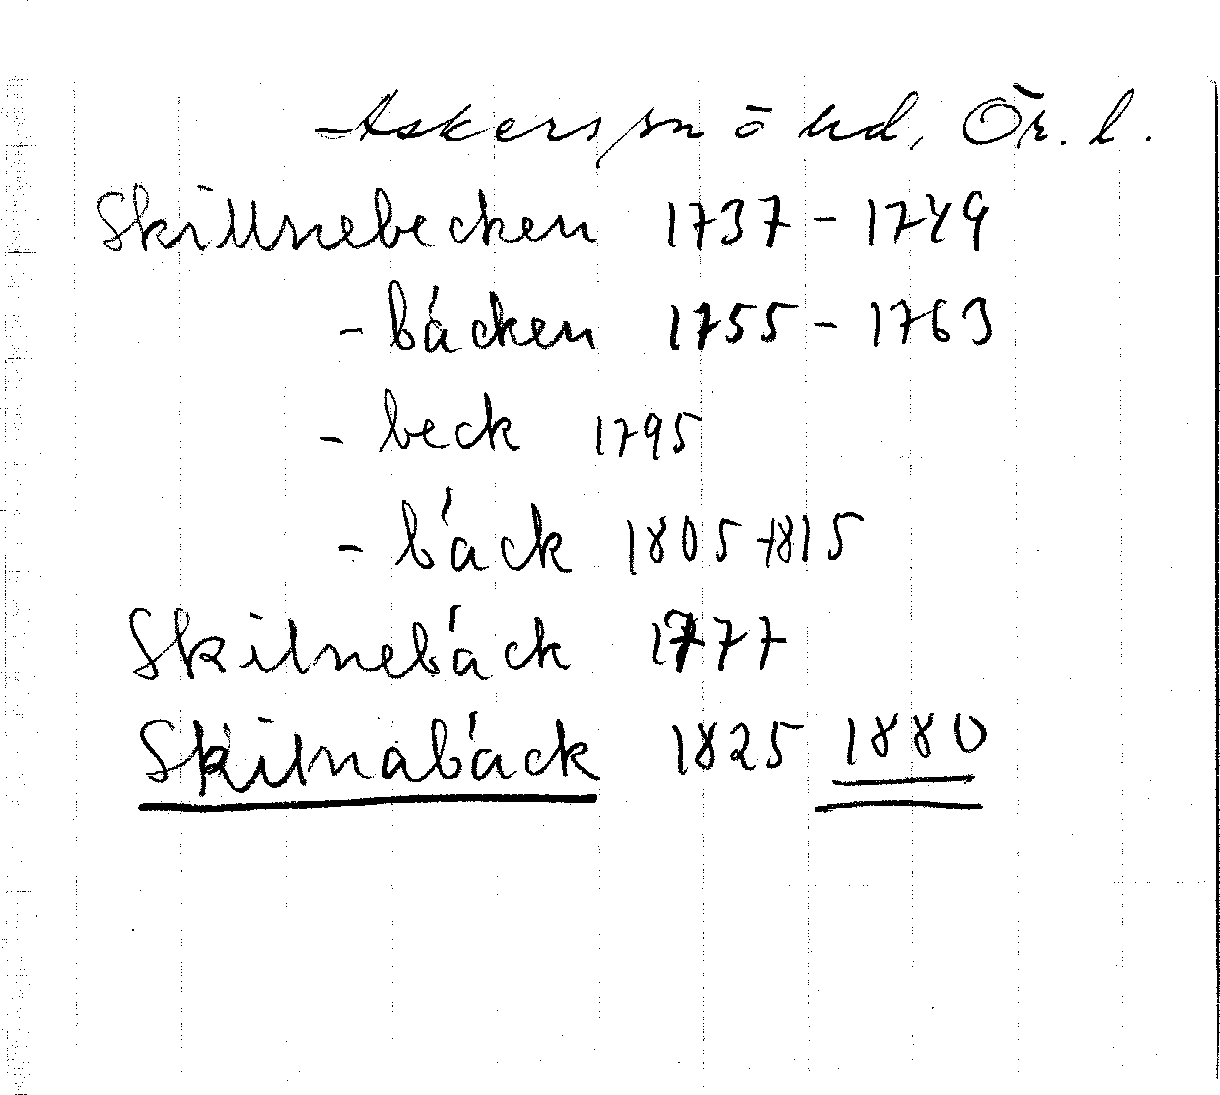 Askers sn o hd, Ör. l.
Skillnebecken 1737 - 1749
- bäcken 1755 - 1763
- beck 1795
- bäck 1805-1815
Skilnebäck 1777
Skilnabäck 1825 1880